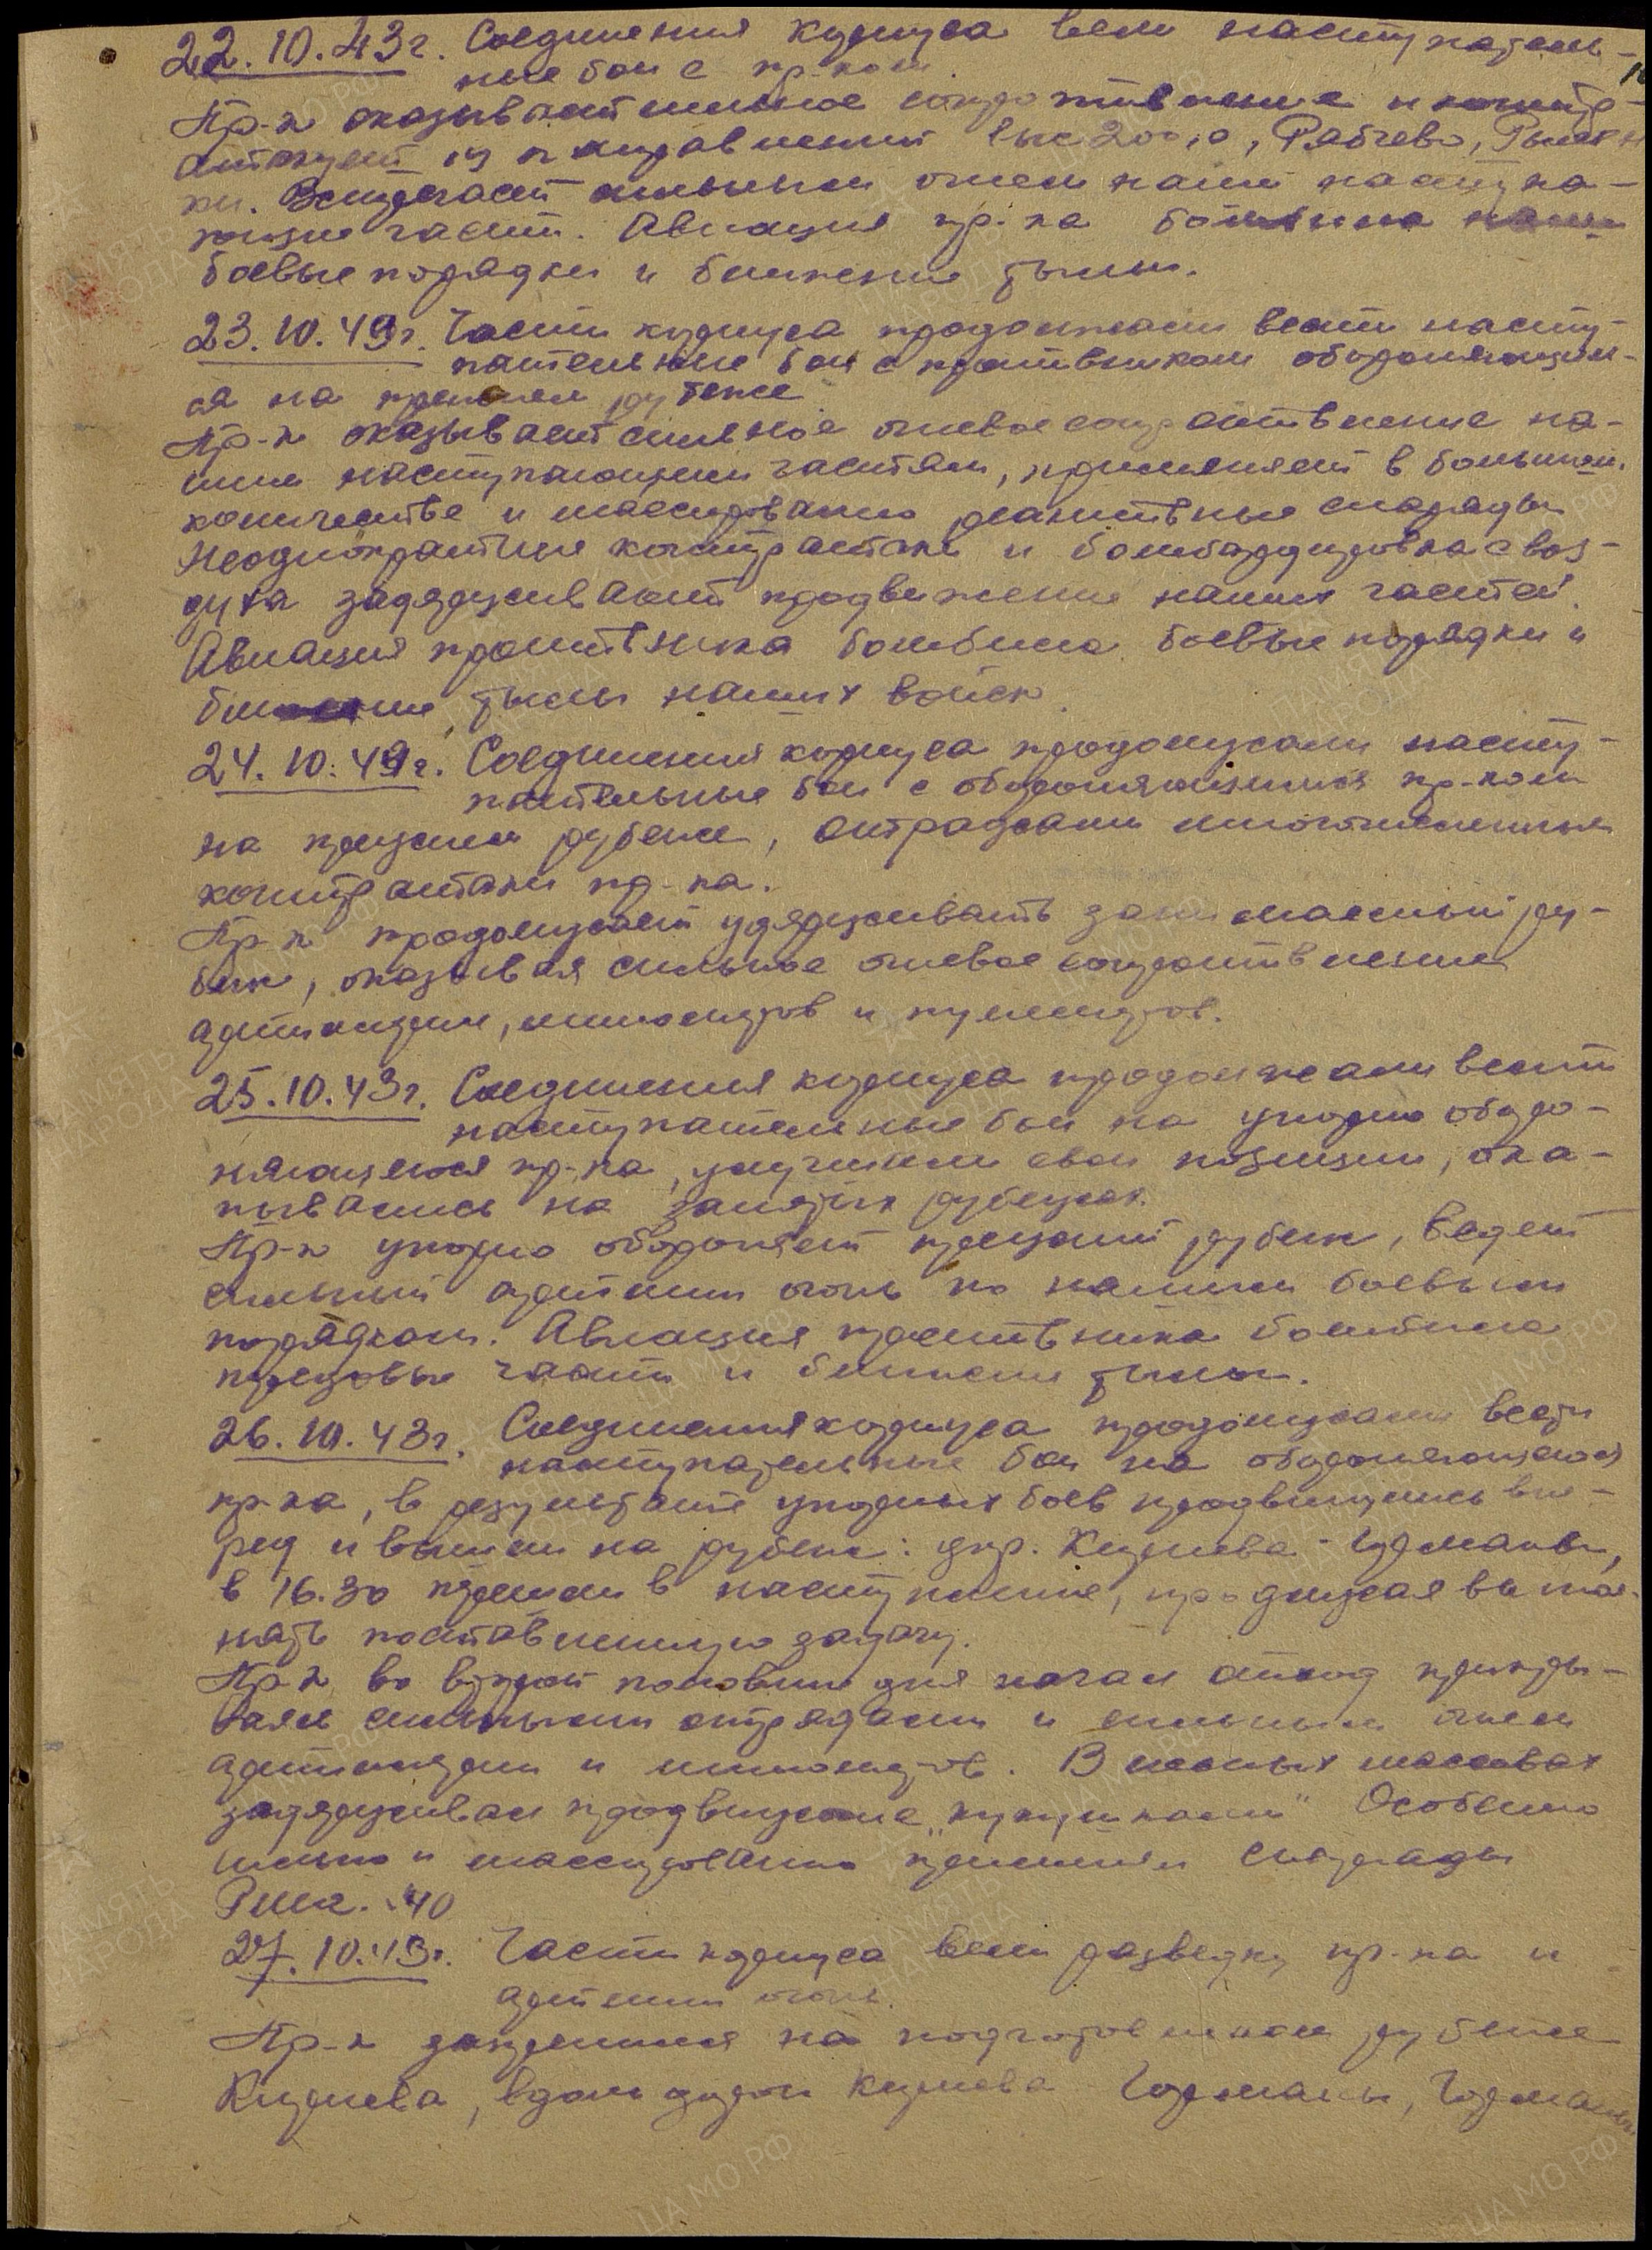 22.10.43г. Соединения корпуса вели наступатель-
ные бои с пр-ком.
Пр-к оказывает сильное сопротивление и контр-
атакует из направлений выс 200,0, Рябчево,
ки. Задерживает сильным огнем наши наступа-
ющие части. Авиация пр-ка бомбила наши
боевые порядки и ближние тылы.
23.10.43г. Части корпуса продолжали вести насту-
пательные бои с противником обороняющим-
ся на прежнем рубеже
Пр-к оказывает сильное огневое сопротивление на-
шим наступающим частям, применяет в большом
количестве и массированно реактивные снаряды
Неоднократные контратаки и бомбардировка с воз-
духа задерживают продвижение наших частей.
Авиация противника бомбила боевые порядки и
ближние тылы наших войск.
24.10.43г. Соединения корпуса продолжали насту-
пательные бои с обороняющимся пр-ком
на прежнем рубеже, отражали многочисленные
контратаки пр-ка.
Пр-к продолжает удерживать занимаемый ру-
беж, оказывая сильное огневое сопротивление
артиллерии, минометов и пулеметов.
25.10.43г. Соединения корпуса продолжали вести
наступательные бои на упорно оборо-
няющегося пр-ка, улучшили свои позиции, ока-
пывались на занятых рубежах.
Пр-к упорно обороняет прежний рубеж, ведет
сильный арт.мин огонь по нашим боевым
порядкам. Авиация противника бомбила
передовые части и ближние тылы.
26.10.43г. Соединения корпуса продолжали вести
наступательные бои на обороняющегося
пр-ка, в результате упорных боев продвинулись впе-
ред и вышли на рубеж: дер. Киреева - Гурманы,
в 16.30 перешли в наступление, продолжая выпол-
нять поставленную задачу.
Пр-к во второй половине дня начал отход прикры-
ваясь сильными отрядами и сильным огнем
артиллерии и минометов. В лесных массивах
задерживал продвижение "кукушками" Особенно
сильно и массированно применял снаряды
40
27.10.43г. Части корпуса вели разведку пр-ка и
арт мин огонь.
Пр-к закрепился на подготовленном рубеже
Киреева, вдоль дороги Киреева Гурманы, Гурманы